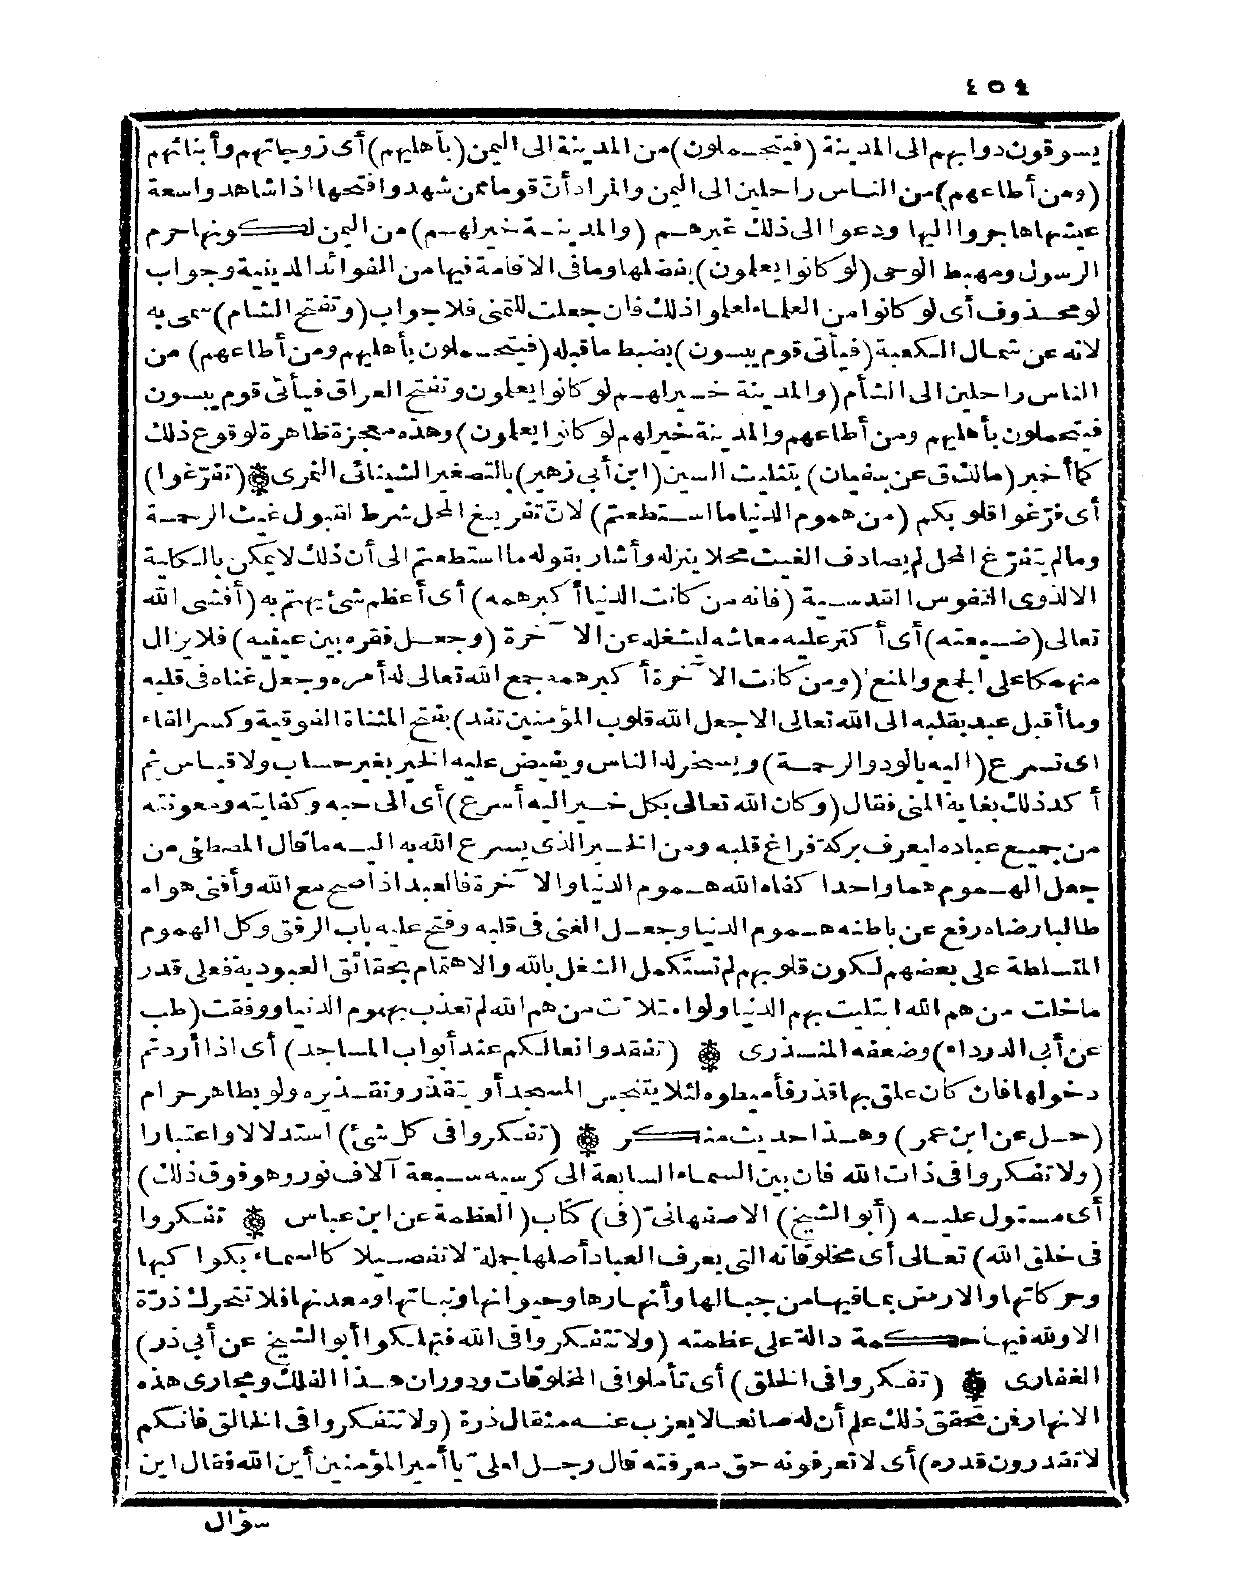 ٤٥٤
يسوقون دوابهم الى المدينة (فيتحملون) من المدينة الى اليمن (بأهليهم) أى زوجاتهم وأبنائهم
(ومن أطاعهم) من الناس راحلين الى اليمن والمراد أن قوما ممن شهد وافتحها اذا شاهد واسعة
عيشها هاجروا اليها ودعوا الى ذلك غيرهم (والمدينة خير لهم) من اليمن لكونها حرم
الرسول ومهبط الوحى (لو كانوا يعلمون) بفضلها وما فى الاقامة فيها من الفوائد الدينية وجواب
لو محذوف أى لو كانوا من العلماء لعلموا ذلك فان جعلت للتمنى فلا جواب (وتفتح الشام) سمى به
لانه عن شمال الكعبة (فيأتى قوم يبسون) بضبط ما قبله (فيتحملون بأهليهم ومن أطاعهم) من
الناس راحلين الى الشأم (والمدينة خير لهم لو كانوا يعلمون وتفتح العراق فيأتى قوم يبسون
فيتحملون بأهليهم ومن أطاعهم والمدينة خير لهم لو كانوا يعلمون) وهذه معجزة ظاهرة لوقوع ذلك
كما أخبر (مالك ق عن سفيان) بتثليث السين (ابن أبى زهير) بالتصغير الشينائى النمرى ۞ (تفرّغوا)
أى فرّغوا قلوبكم (من هموم الدنيا ما استطعتم) لان تفريغ المحل شرط لقبول غيث الرحمة
وما لم يتفرّغ المحل لم يصادف الغيث محلا ينزله وأشار بقوله ما استطعتم الى أن ذلك لا يمكن بالكلية
الا لذوى النفوس القدسية (فانه من كانت الدنيا أكبر همه) أى أعظم شئ يهتم به (أفشى الله
تعالى (ضيعته) أى أكثر عليه معاشه ليشغله عن الا ٓخرة (وجعل فقره بين عينيه) فلا يزال
منهمكا على الجمع والمنع (ومن كانت الا ٓخرة أكبر همه جمع الله تعالى له أمره وجعل غناه فى قلبه
وما أقبل عبد بقلبه الى الله تعالى الا جعل الله قلوب المؤمنين تفد) بفتح المثناة الفوقية وكسر الفاء
اى تسرع (اليه بالود والرحمة) ويسخر له الناس ويفيض عليه الخير بغير حساب ولا قياس ثم
أكد ذلك بغاية المنى فقال (وكان الله تعالى بكل خير اليه أسرع) أى الى حبه وكفايته ومعونته
من جميع عباده ليعرف بركة فراغ قلبه ومن الخير الذى يسرع الله به اليه ما قال المصطفى من
جعل الهموم هما واحدا كفاه الله هموم الدنيا والا ٓخرة فالعبد اذا صح مع الله وأفنى هواه
طالبا رضاه رفع عن باطنه هموم الدنيا وجعل الغنى فى قلبه وفتح عليه باب الرفق وكل الهموم
المتسلطة على بعضهم لكون قلوبهم لم تستكمل الشغل بالله والاهتمام بحقائق العبودية فعلى قدر
ما خلت من هم الله ابتليت بهم الدنيا ولو امتلا ٔت من هم الله لم تعذب بهموم الدنيا ووفقت (طب
عن أبى الدرداء) وضعفه المنذرى ۞ (تفقدوا نعالكم عند أبواب المساجد) أى اذا أردتم
دخولها فان كان علق بها قذر فأميطوه لئلا يتنجس المسجد أو يتقذر وتقذيره ولو بطاهر حرام
(حل عن ابن عمر) وهذا حديث منكر ۞ (تفكروا فى كل شئ) استدلالا واعتبارا
(ولا تفكروا فى ذات الله فان بين السماء السابعة الى كرسيه سبعة آلاف نور وهو فوق ذلك)
أى مستول عليه (أبو الشيخ) الاصفهانى (فى) كتاب (العظمة عن ابن عباس ۞ تفكروا
فى خلق الله) تعالى أى مخلوقاته التى يعرف العباد أصلها جملة لا تفصيلا كالسماء بكوا كبها
وحركاتها والارض بما فيها من جبالها وأنهارها وحيوانها ونباتها ومعدنها فلا تتحرك ذرّة
الا ولله فيها حكمة دالة على عظمته (ولا تتفكروا فى الله فتهلكوا أبو الشيخ عن أبى ذر)
الغفارى ۞ (تفكروا فى الخلق) أى تأملوا فى المخلوقات ودوران هذا الفلك ومجارى هذه
الانهار فمن تحقق ذلك علم أن له صانعا لا يعزب عنه مثقال ذرة (ولا تتفكروا فى الخالق فانكم
لا تقدرون قدره) أى لا تعرفونه حق معرفته قال رجل لعلى يا أمير المؤمنين أين الله فقال اين
سؤال